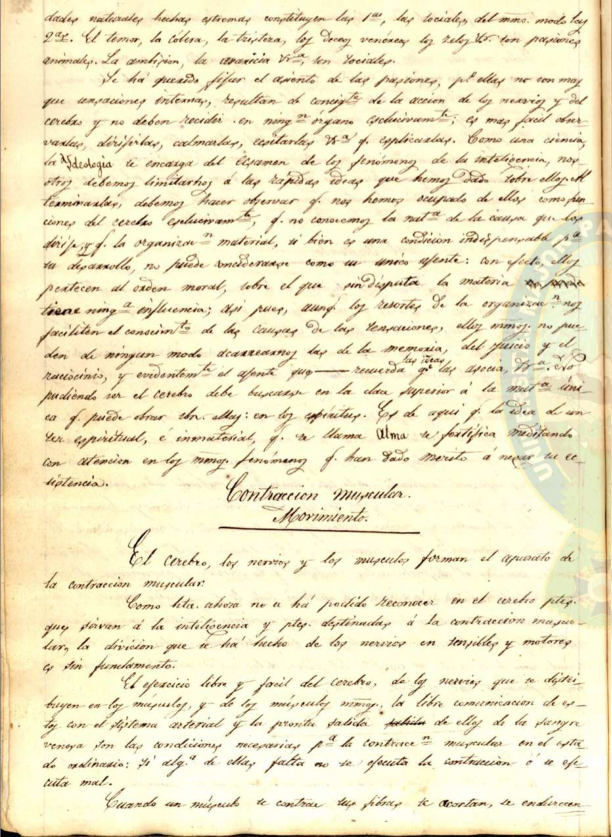 dades naturales hechas estremas constituyen las 1as, las sociales del mmo. modo las
2as. El temor, la cólera, la tristeza, los deseos venéreos los zelos &c. son pasiones
animales. La ambision, la avaricia &a, son sociales.
Se há querido fijar el asiento de las pasiones, pº. ellas no son mas
que sensaciones internas, resultan de consigte. de la accion de los nervios y del
cerebro y no deben recidir en ningn. organo esclusivamte.; es mas facil obser-
varlas, dirijirlas, calmarlas, exitarlas &a. q. esplicarlas. Como una ciencia,
la Ydeologia se encarga del Ecsamen de los fenómenos de la inteligencia, nos-
otros debemos limitarnos á las rápidas ideas que hemos dado sobre ellos. Al
terminarlas, debemos hacer observar q. nos hemos ocupado de ellos como fun-
ciones del cerebro esclusivamte., q. no conocemos la nata. de la causa que los
dirije, y q. la organizan. material, si bien es una condicion indispensable pa.
su desarrollo, no puede considerarse como su unico ajente: con efecto, ellos
pertecen al orden moral, sobre el que sin disputa la materia
tiene ninga. influencia; asi pues, aunq. los resortes de la organizan. nos
faciliten el conocimto. de las causas de las sensaciones, ellos mmos. no pue-
den de ningun modo acarrearnos las de la memoria, del juicio y el
raciocinio, y evidentemte. el ajente que recuerda las ideas, qe. las asocia, &a. no
pudiendo ser el cerebro debe buscarse en la clase superior á la mata. úni-
ca q. puede obrar sbre. ellas: en los espiritus. Es de aqui q. la idea de un
ser espiritual, é inmaterial, q. se llama Alma se fortifica meditando
con atencion en los mmos. fenómenos q. han dado merito á negar su ec-
sistencia.
Contraccion muscular.
Movimiento.
El cerebro, los nervios y los musculos forman el aparato de
la contraccion muscular.
Como hta. ahora no se há podido reconocer en el cerebro ptes.
que sirvan á la inteligencia y ptes. destinadas á la contraccion muscu-
lar, la división que se há hecho de los nervios en sensibles y motores
es sin fundamento.
El ejercicio libre y facil del cerebro, de los nervios que se distri-
buyen en los músculos, y de los músculos mmos., la libre comunicacion de es-
tos con el sistema arterial y la pronta salida de ellos de la sangre
venosa son las condiciones necesarias pa. la contraccn. muscular en el esta-
do ordinario: si alga. de ellas falta no se ejecuta la contraccion ó se eje-
cuta mal.
Cuando un músculo se contrae sus fibras se acortan, se endurecen